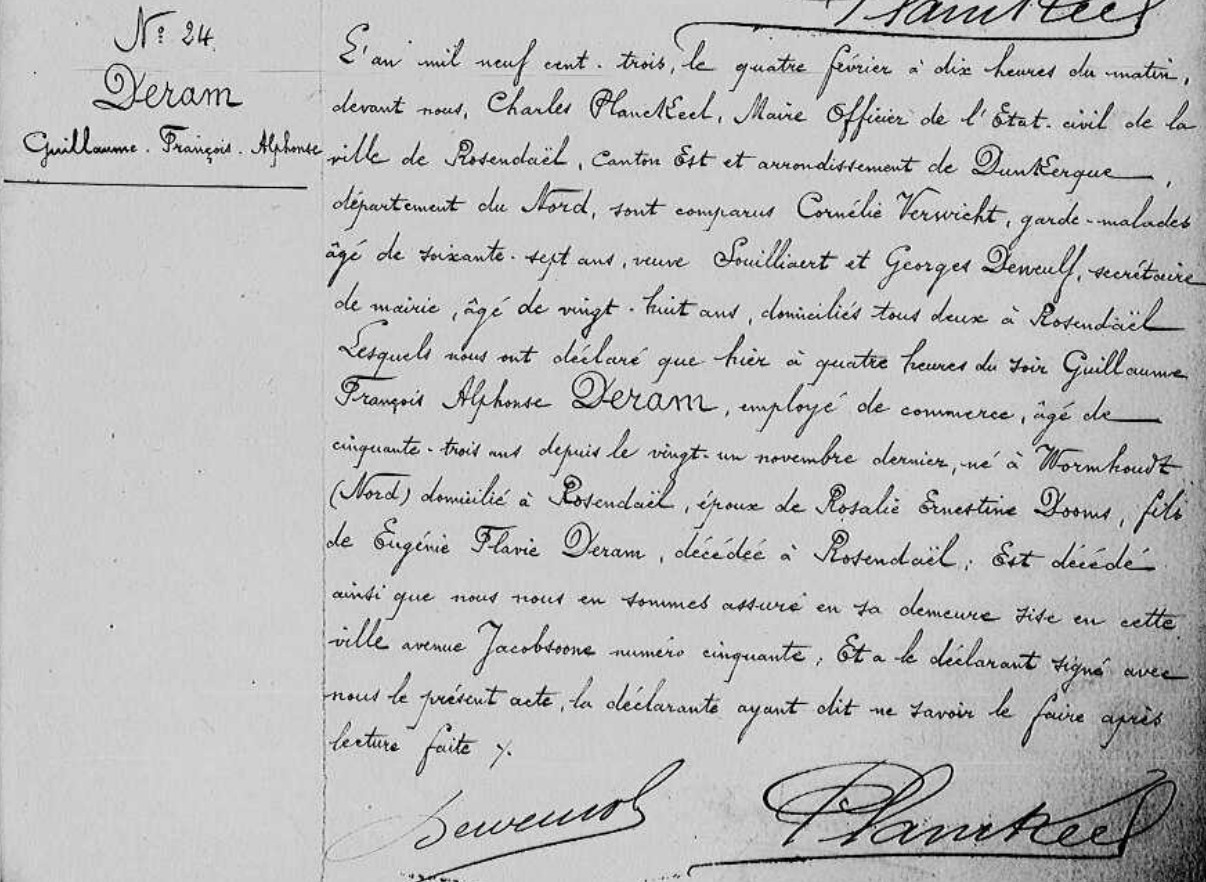 Planckeel
N° 24
Deram
Guillaume. François. Alphonse
L'an mil neuf cent. trois, le quatre février à dix heures du matin,
devant nous, Charles Planckeel, Maire Officier de l'État. civil de la
ville de Rosendaël, Canton Est et arrondissement de Dunkerque,
département du Nord, sont comparus Cornélie Verwicht, garde-malades
âgé de soixante-sept ans, veuve Souilliaert et Georges Deweulf, secrétaire
de mairie, âgé de vingt-huit ans, domiciliés tous deux à Rosendaël
Lesquels nous ont déclaré que hier à quatre heures du soir Guillaume
François Alphonse Deram, employé de commerce, âgé de
cinquante-trois ans depuis le vingt-un novembre dernier, né à Wormhoudt
(Nord) domicilié à Rosendaël, époux de Rosalie Ernestine Dooms, fils
de Eugénie Flavie Deram, décédée à Rosendaël; Est décédé
ainsi que nous nous en sommes assuré en sa demeure sise en cette
ville avenue Jacobsoone numéro cinquante; Et a le déclarant signé avec
nous le présent acte, la déclarante ayant dit ne savoir le faire après
lecture faite ./.
Planckeel